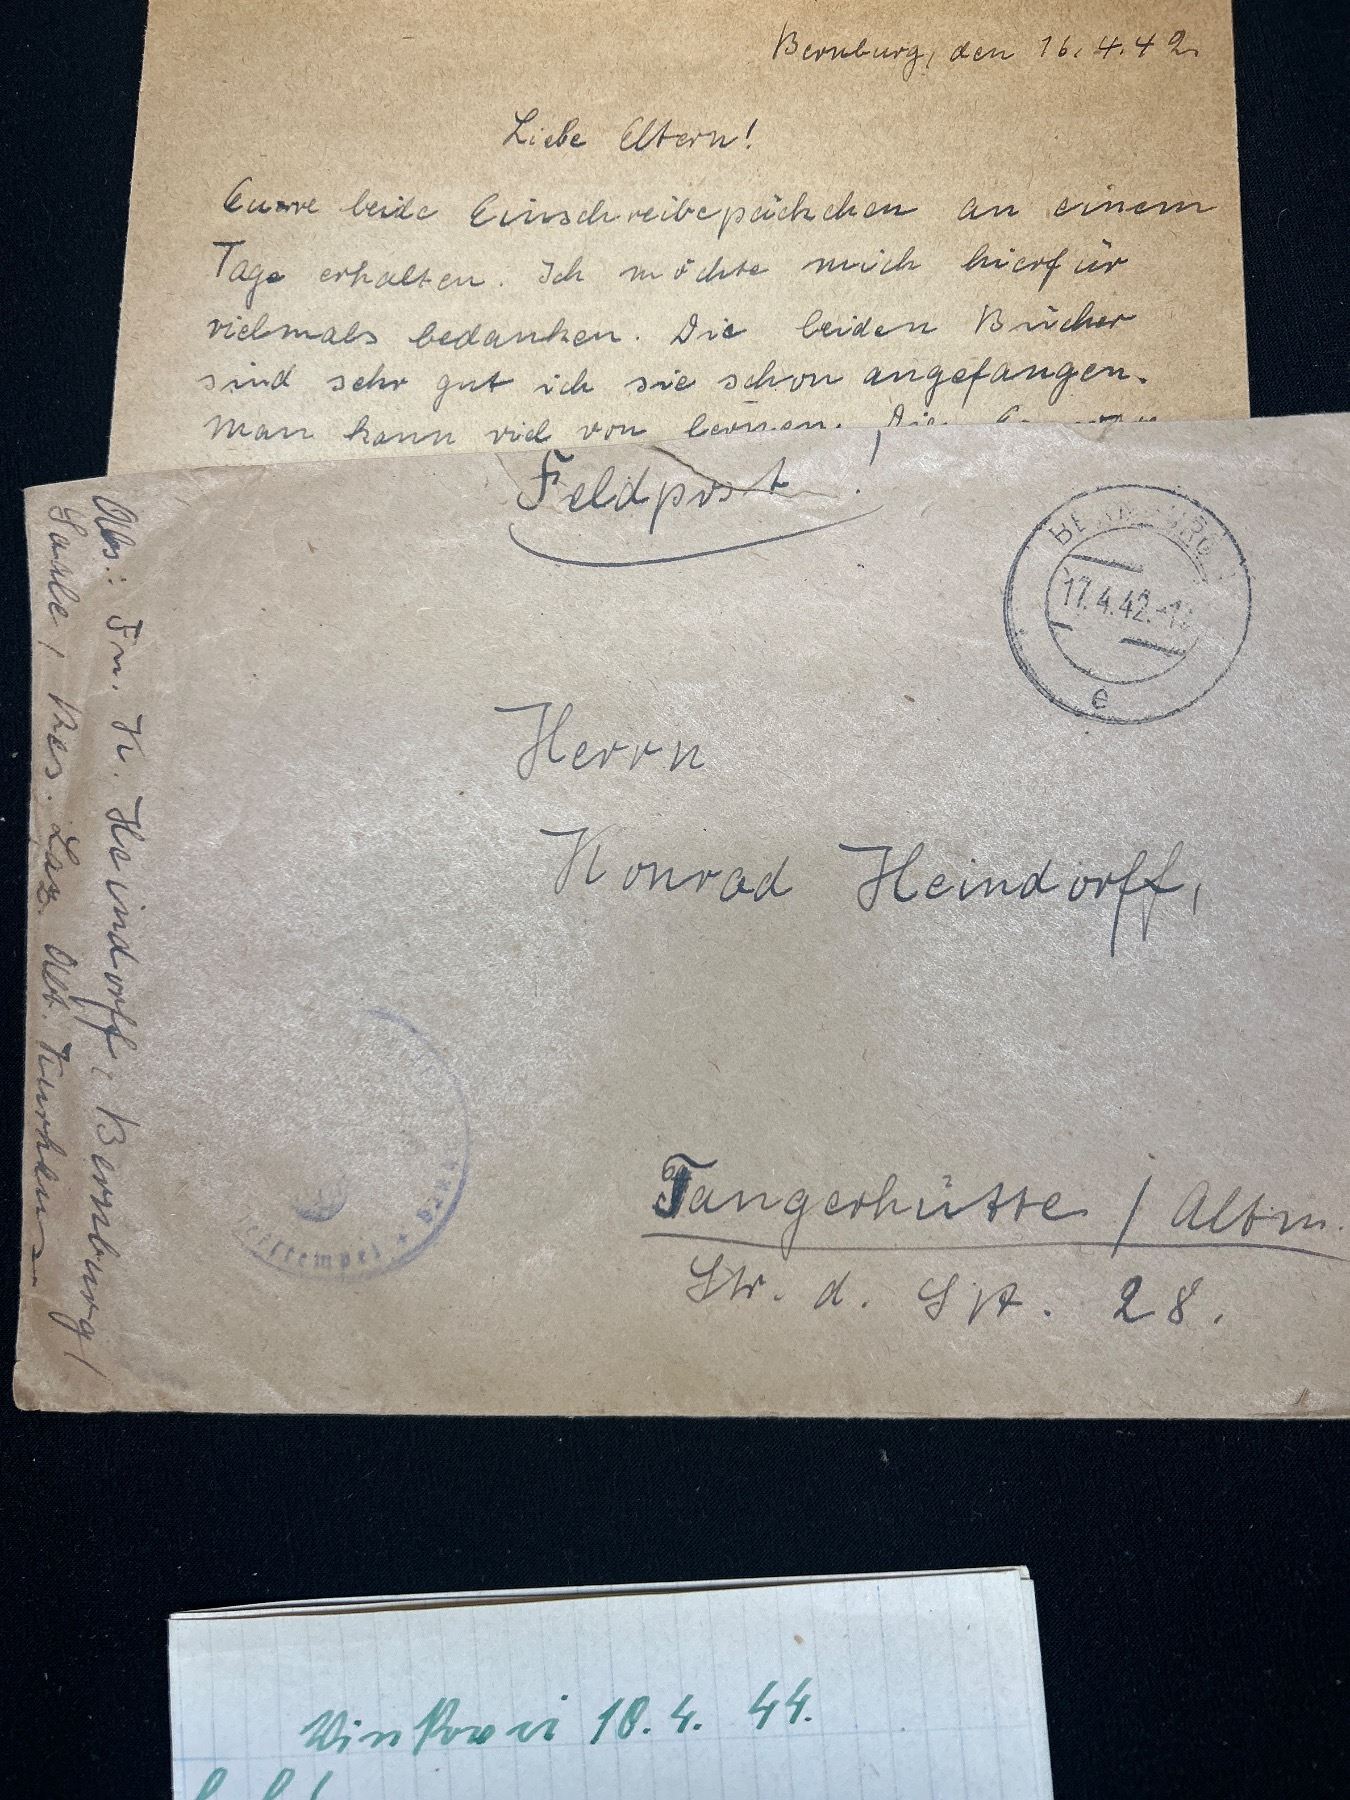 Bernburg, den 16.4.42.
Liebe Eltern!
Eure beide Einschreibepäckchen an einem
Tage erhalten. Ich möchte mich hierfür
vielmals bedanken. Die beiden Bücher
sind sehr gut ich sie schon angefangen.
Man kann viel von lernen. Die
Feldpost!
BERNBURG
17.4.42.-1
e
Herrn
Konrad Heindorff,
Tangerhütte / Altm.
Str. d. SA. 28.
Abs.: Fn. K. Heindorff, Bernburg/
Saale, Res. Laz. Abt. Kurhaus
Briefstempel *
Vinkovci 18.4.44.